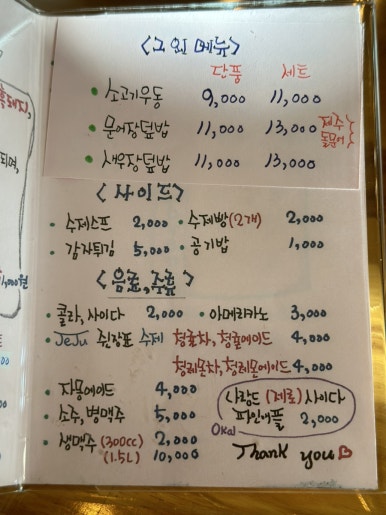 <그 외 메뉴>
단품 세트
• 소고기우동 9,000 11,000
• 문어장덮밥 11,000 13,000 제주 돌문어
• 새우장덮밥 11,000 13,000
<사이드>
• 수제스프 2,000 • 수제빵(2개) 2,000
• 감자튀김 5,000 • 공기밥 1,000
<음료, 주류>
• 콜라, 사이다 2,000 • 아메리카노 3,000
• JeJu 쥔장표 수제 청귤차, 청귤에이드 4,000
청레몬차, 청레몬에이드 4,000
• 자몽에이드 4,000
• 소주, 병맥주 5,000
• 생맥주 (300cc) 2,000
(1.5L) 10,000
사랑도 (제로) 사이다
파인애플 2,000
Oka!
Thank you